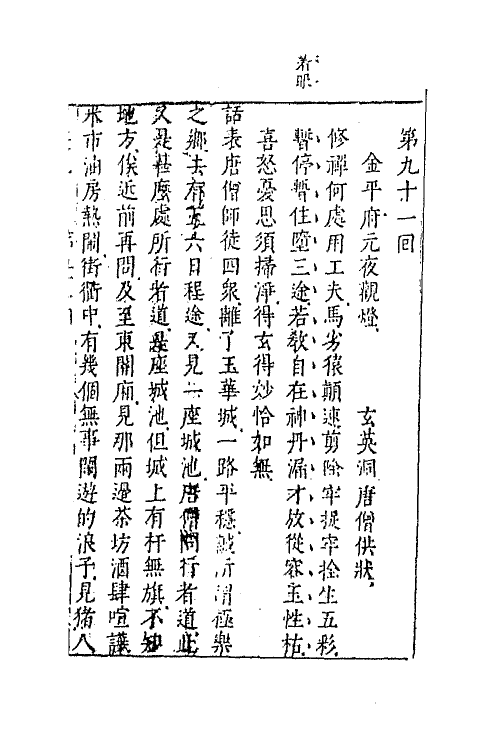 着眼
第九十一回
金平府元夜觀燈 玄英洞唐僧供狀
修禪何處用工夫馬劣猿顛速剪除牢捉牢拴生五彩
暫停暫住墮三途若教自在神丹漏才放從容玉性枯
喜怒憂思須掃淨得玄得妙恰如無
話表唐僧師徒四衆離了玉華城一路平穩誠所謂極樂
之鄉去有五六日程途又見一座城池唐僧問行者道此
又是甚麽處所行者道是座城池但城上有杆無旗不知
地方俟近前再問及至東關廂見那兩邊茶坊酒肆喧譁
米市油房熱鬧街衢中有幾個無事閑遊的浪子見猪八